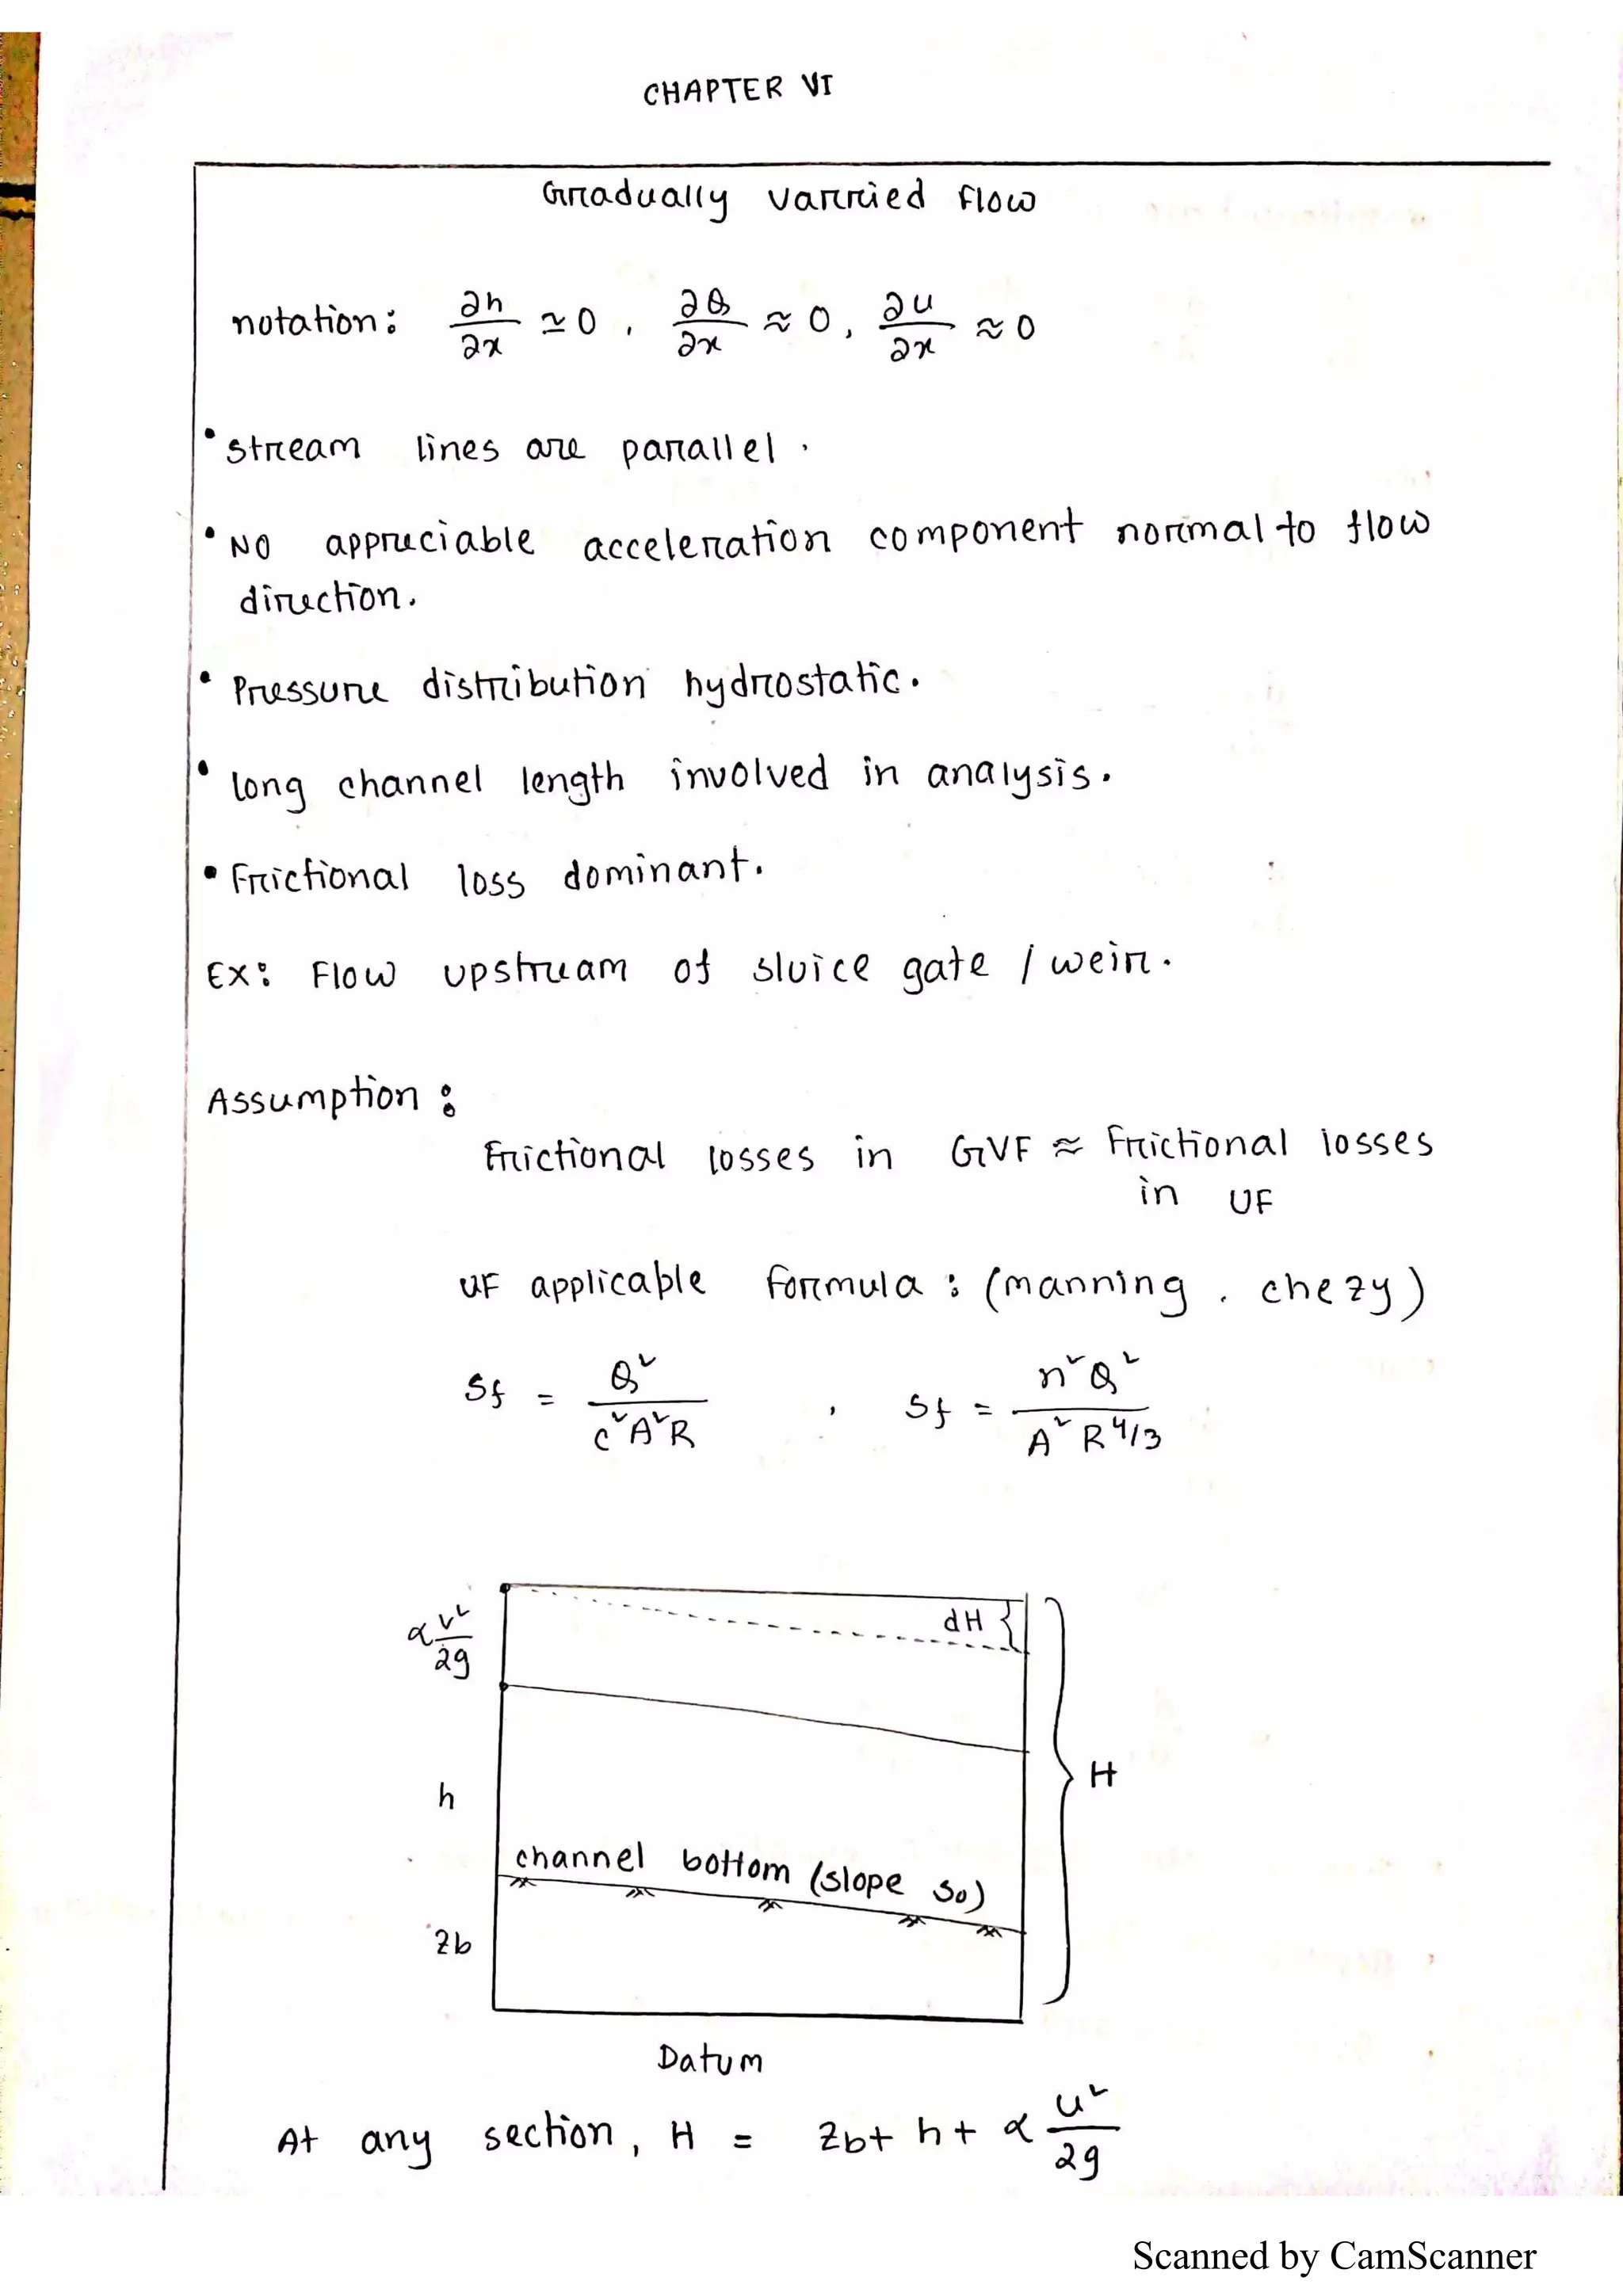 CHAPTER VI
Gradually varried Flow
notation: ∂h/∂x ≃ 0, ∂Q/∂x ≈ 0, ∂u/∂x ≈ 0
• stream lines are parallel.
• No appreciable acceleration component normal to flow
direction.
• Pressure distribution hydrostatic.
• long channel length involved in analysis.
• Frictional loss dominant.
EX: Flow upstream of sluice gate / weir.
Assumption:
Frictional losses in GVF ≈ Frictional losses
in UF
UF applicable formula: (manning, chezy)
Sf = Q²/C²A²R , Sf = n²Q²/A²R^4/3
α v²/2g
dH
H
h
channel bottom (slope So)
Zb
Datum
At any section, H = Zb + h + α u²/2g
Scanned by CamScanner